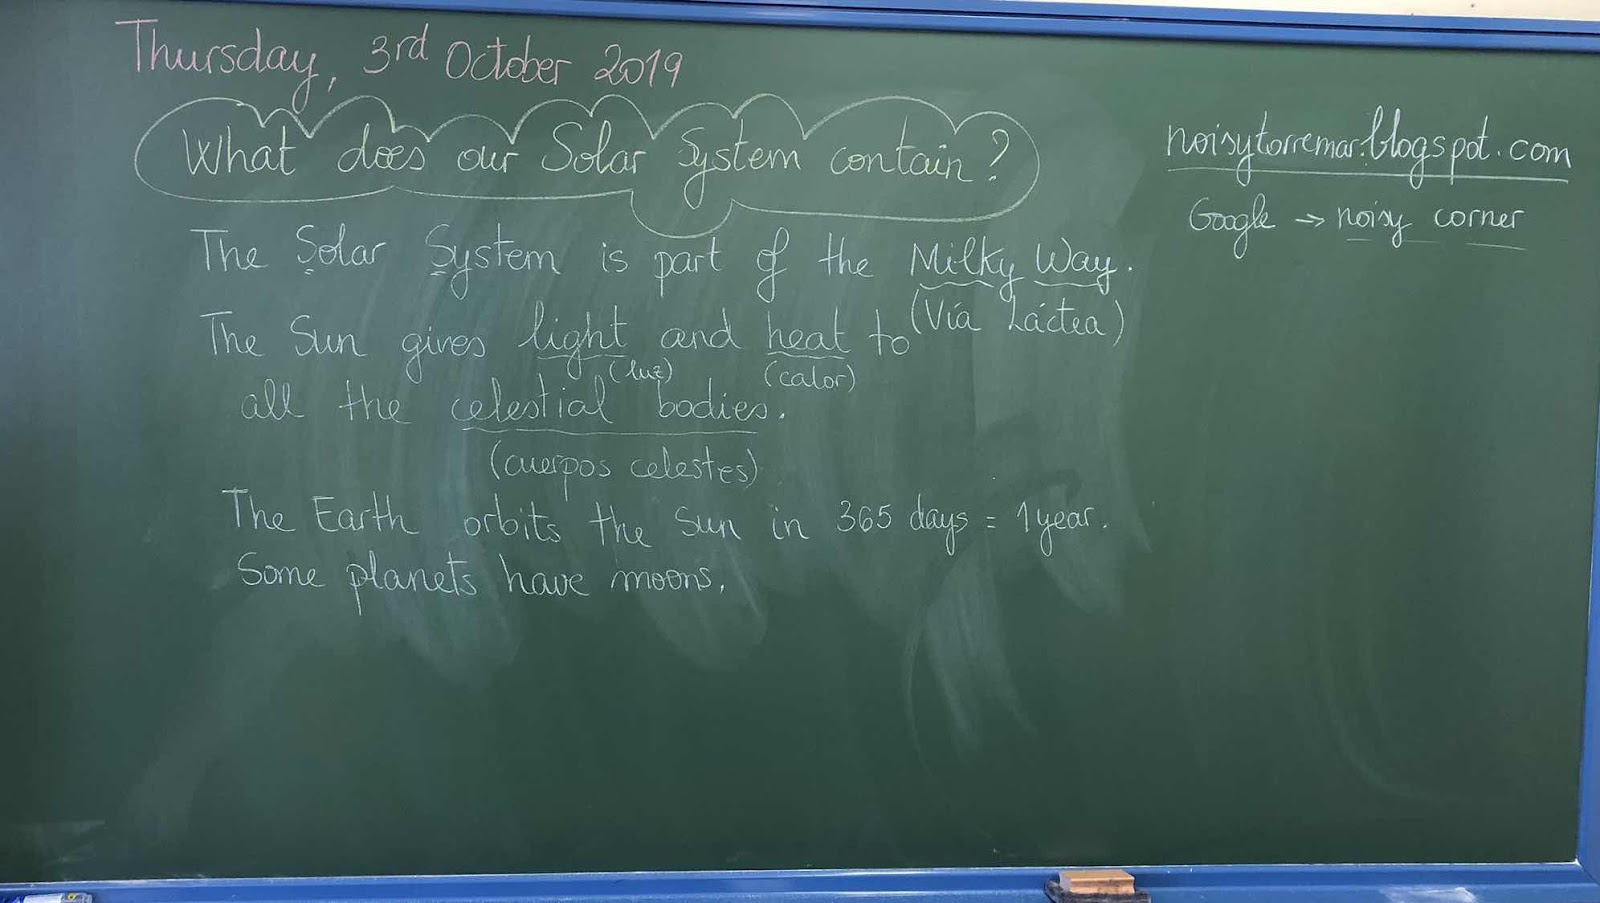 Thursday, 3rd October 2019
What does our Solar System contain?
The Solar System is part of the Milky Way.
(Vía Láctea)
The Sun gives light and heat to
(luz) (calor)
all the celestial bodies.
(cuerpos celestes)
The Earth orbits the Sun in 365 days = 1 year.
Some planets have moons.
noisytorremar.blogspot.com
Google → noisy corner